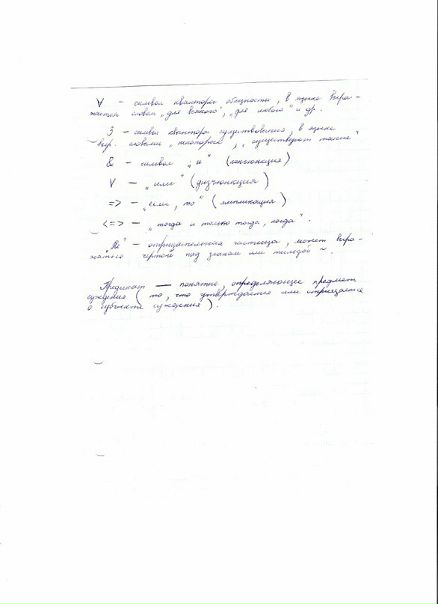 ∀ – символ квантора общности, в языке выра-
жается словом „для всякого", „для любого" и др.
∃ – символ квантора существования, в языке
выр. словами „некоторые", „существует такие"
& – символ „и" (конъюнкция)
V – „или" (дизъюнкция)
=> – „если, то" (импликация)
<=> – „тогда и только тогда, когда".
„Не" – отрицательная частица, может выра-
жаться чертой над знаком или тильдой ~.
Предикат – понятие, определяющее предмет
суждения (то, что утверждается или отрицается
о субъекте суждения).